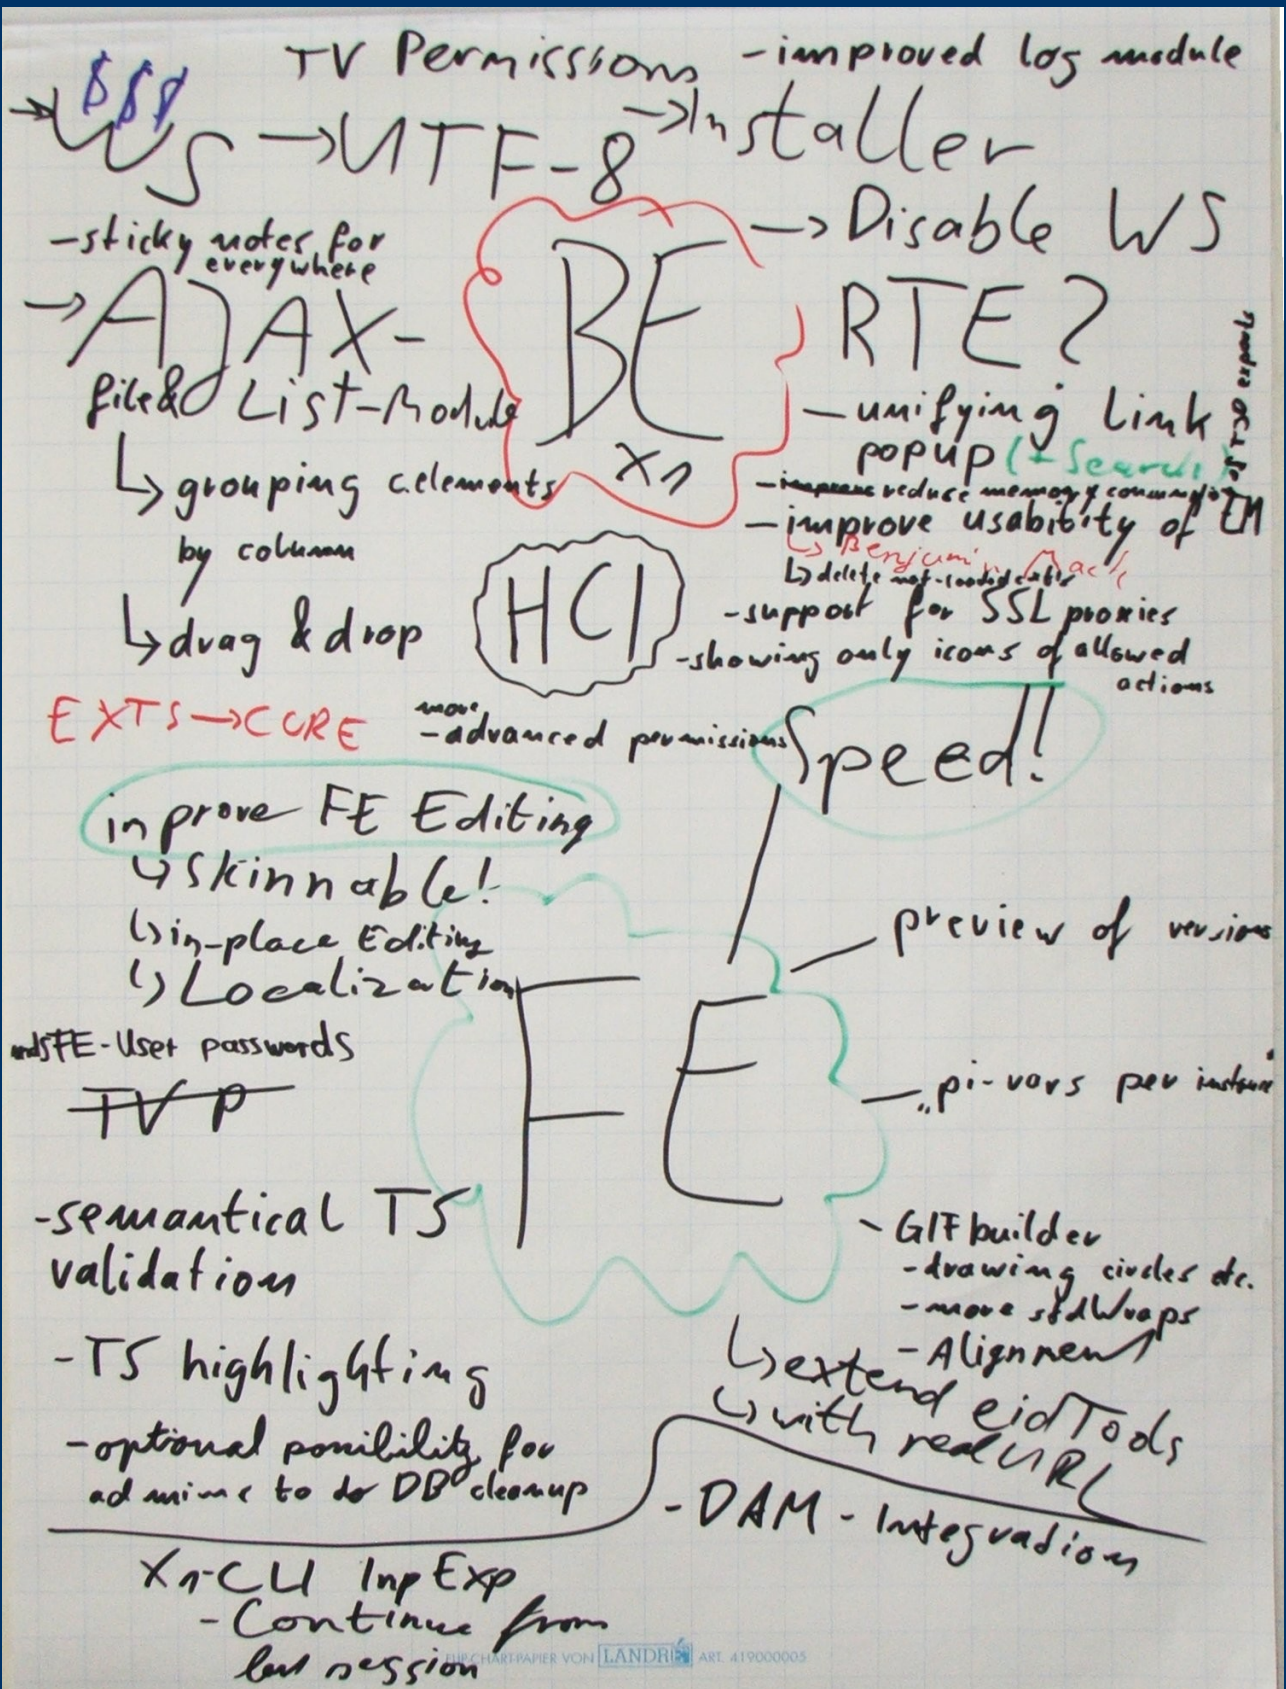 TV Permissions
- improved log module
$$$
→ WS → UTF-8
→ Installer
→ Disable WS
- sticky notes for
everywhere
→ AJAX-
file & List-Module
↳ grouping c.elements
by column
↳ drag & drop
BE
X1
RTE?
- unifying Link
popup (+ Search)
of T3D exports
- reduce memory consumption
- improve usability of EM
↳ Benjamin Mack
↳ delete not-loaded exts
- support for SSL proxies
- showing only icons of allowed
actions
HCI
EXTS → CORE
more
- advanced permissions
Speed!!
inprove FE Editing
↳ Skinnable!
↳ in-place Editing
↳ Localization
FE-User passwords
TV P
FE
preview of versions
pi-vars per instance
- semantical TS
validation
- TS highlighting
- optional possibility for
admins to do DB cleanup
- GIFbuilder
- drawing circles etc.
- more stdWraps
- Alignment
↳ extend eidTools
↳ with realURL
- DAM - Integration
X1-CLI ImpExp
- Continue from
last session
FLIP-CHART-PAPIER VON LANDRÉ ART. 419000005